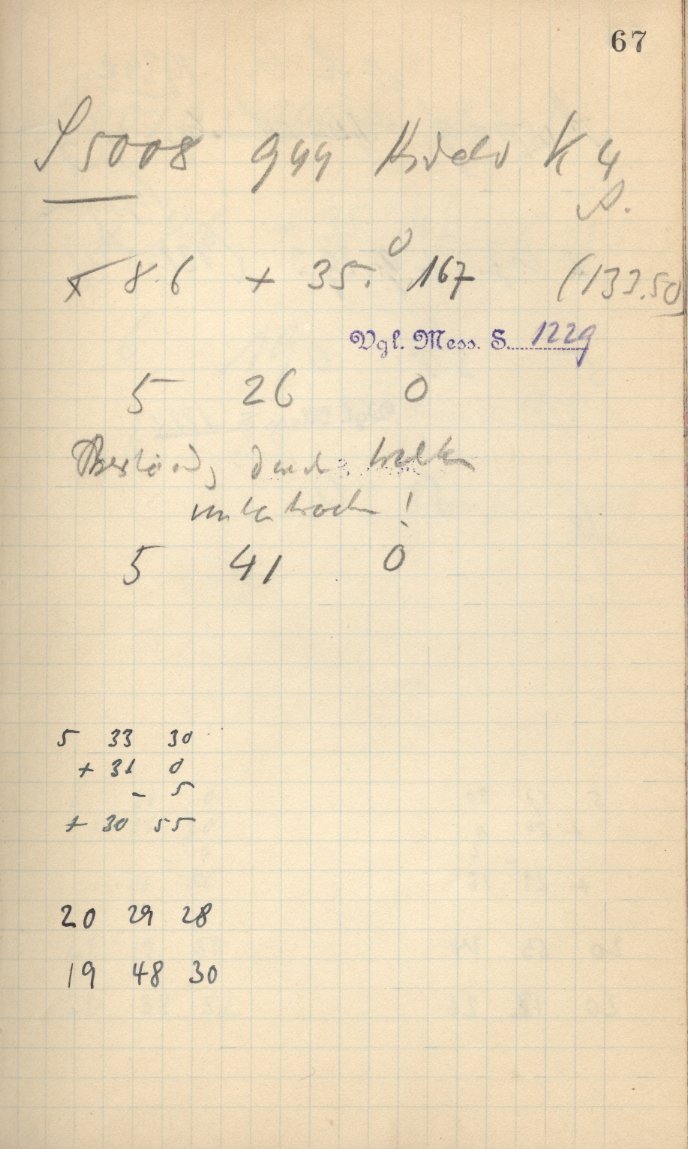 67
S 5008 gyy K 4
+ 8.6 + 35.0 167 (133.50)
Vgl. Mess. S. 1229
5 26 0
durch Wolken
unterbrochen!
5 41 0
5 33 30
+ 31 0
- 5
+ 30 55
20 29 28
19 48 30